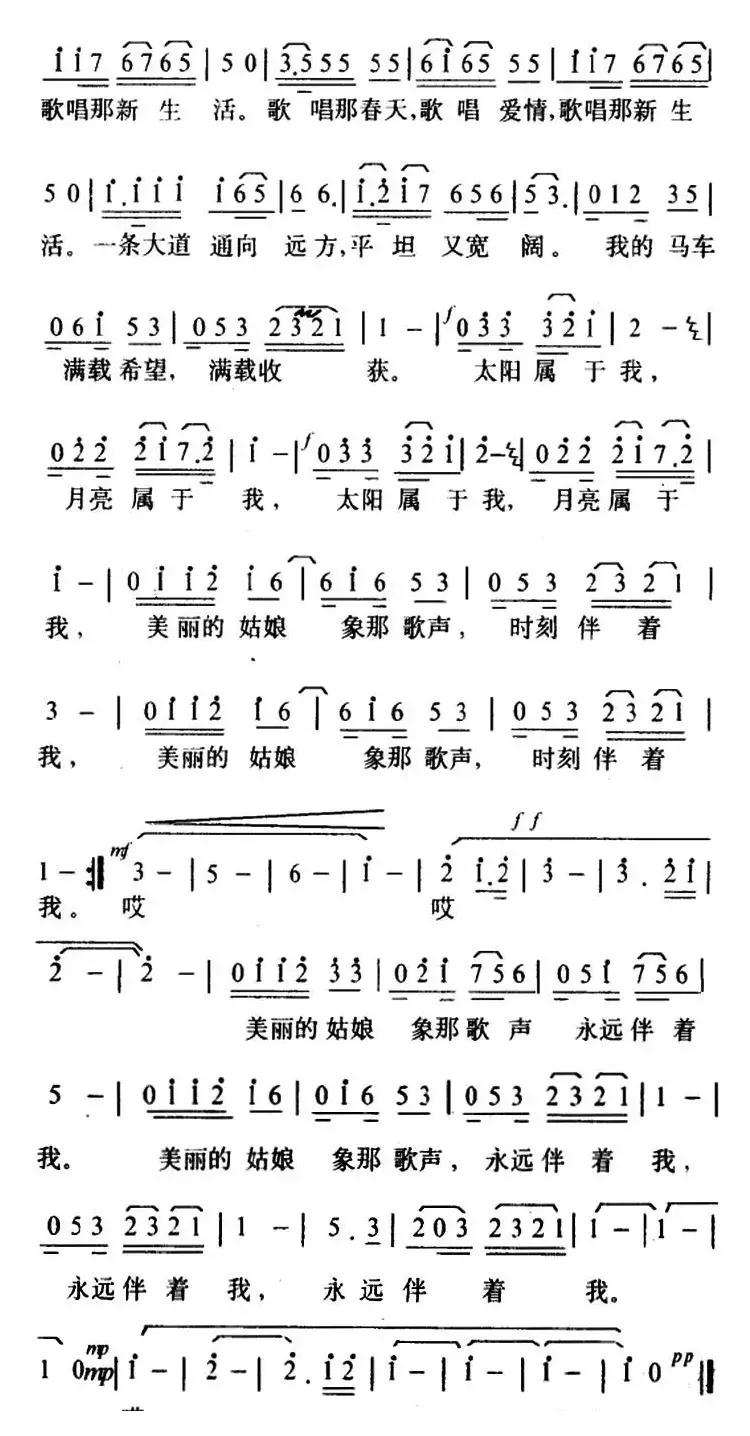 1 1 7 6 7 6 5 | 5 0 | 3. 5 5 5 5 5 | 6 1 6 5 5 5 | 1 1 7 6 7 6 5 |
歌唱那新 生 活。歌 唱那春天,歌 唱 爱情,歌唱那新 生
5 0 | 1. 1 1 1 1 6 5 | 6 6. | 1. 2 1 7 6 5 6 | 5 3. | 0 1 2 3 5 |
活。一条大道 通向 远方,平 坦 又宽 阔。 我的 马车
0 6 1 5 3 | 0 5 3 2 3 2 1 | 1 - | f 0 3 3 3 2 1 | 2 - |
满载希望, 满载收 获。 太阳属于我,
0 2 2 2 1 7. 2 | 1 - | f 0 3 3 3 2 1 | 2 - | 0 2 2 2 1 7. 2 |
月亮 属 于 我, 太阳 属 于我, 月亮属 于
1 - | 0 1 1 2 1 6 | 6 1 6 5 3 | 0 5 3 2 3 2 1 |
我, 美丽的 姑娘 象那歌声, 时刻 伴 着
3 - | 0 1 1 2 1 6 | 6 1 6 5 3 | 0 5 3 2 3 2 1 |
我, 美丽的 姑娘 象那歌声, 时刻伴 着
ff
1 - :‖ mf 3 - | 5 - | 6 - | 1 - | 2 1. 2 | 3 - | 3. 2 1 |
我。 哎 哎
2 - | 2 - | 0 1 1 2 3 3 | 0 2 1 7 5 6 | 0 5 1 7 5 6 |
美丽的 姑娘 象那歌 声 永远伴 着
5 - | 0 1 1 2 1 6 | 0 1 6 5 3 | 0 5 3 2 3 2 1 | 1 - |
我。 美丽的 姑娘 象那歌声, 永远伴 着 我,
0 5 3 2 3 2 1 | 1 - | 5. 3 | 2 0 3 2 3 2 1 | 1 - | 1 - |
永远伴 着 我, 永 远 伴 着 我。
1 0 mp mp | 1 - | 2 - | 2. 1 2 | 1 - | 1 - | 1 - | 1 0 pp ‖